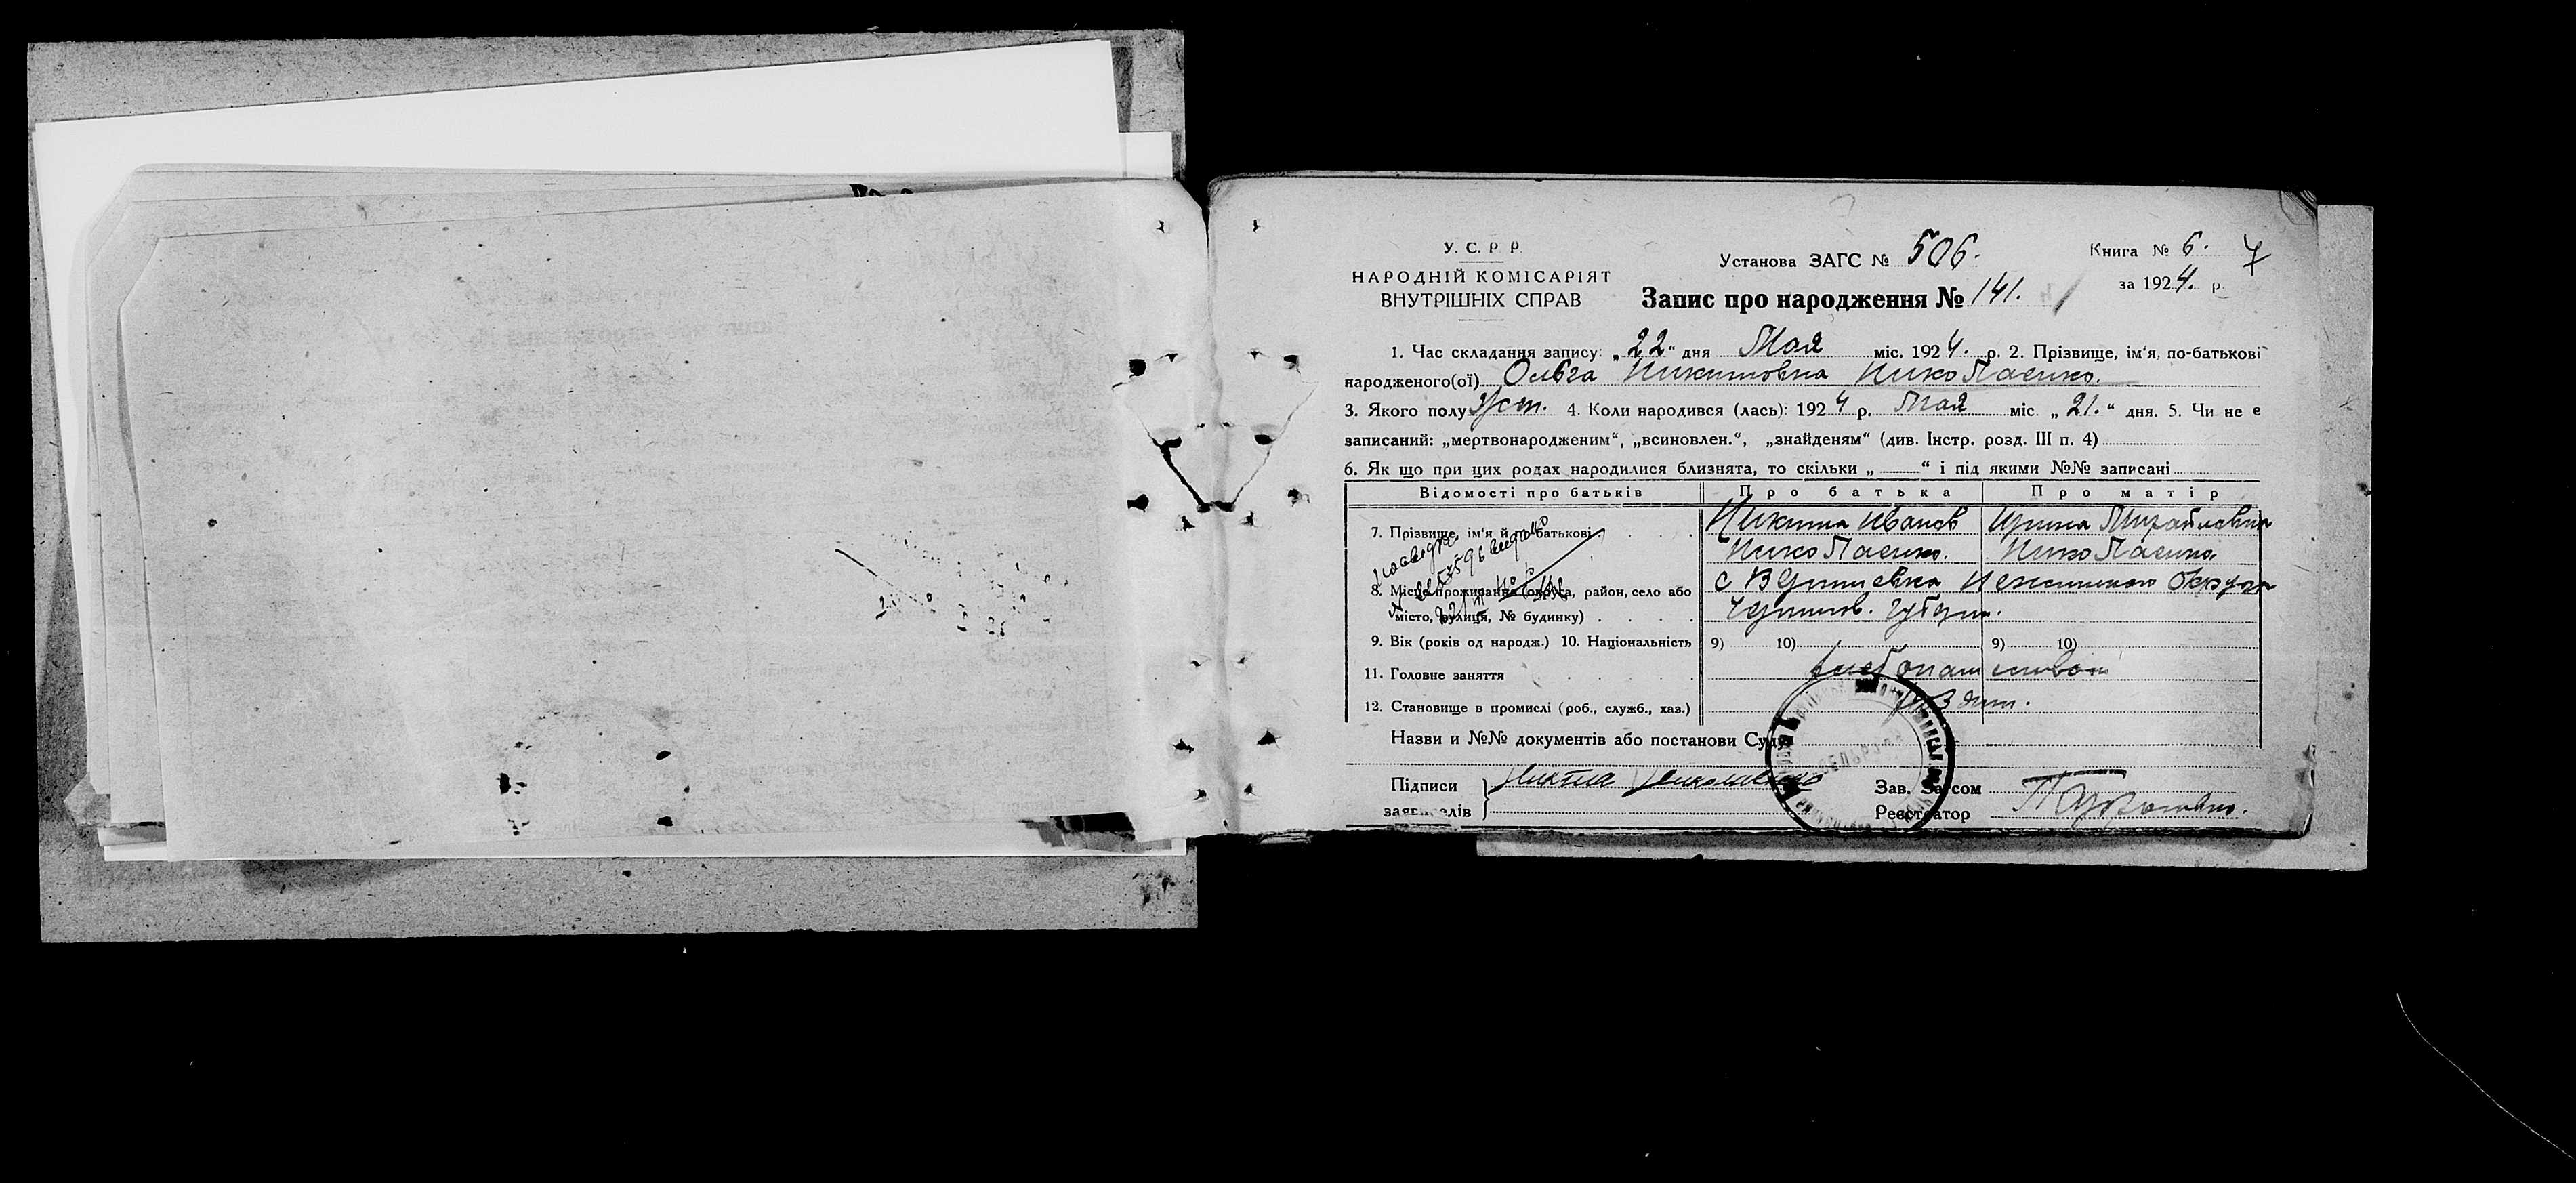 У. С. Р. Р.
НАРОДНІЙ КОМІСАРІЯТ
ВНУТРІШНІХ СПРАВ
Установа ЗАГС № 506.
Книга № 6. 7
за 1924. р.
Запис про народження № 141.
1. Час складання запису: „22“ дня Мая міс. 1924. р. 2. Прізвище, ім'я, по-батькові
народженого(ої) Ольга Никитовна Николаенко.
3. Якого полу Жен. 4. Коли народився (лась): 1924 р. Мая міс. „21.“ дня. 5. Чи не є
записаний: „мертвонародженим“, „всиновлен.“, „знайденям“ (див. Інстр. розд. III п. 4)
6. Як що при цих родах народилися близнята, то скільки „ “ і під якими №№ записані
Відомості про батьків Про батька Про матір
7. Прізвище, ім'я й по-батькові Никита Иванов Ирина Михайловна
Николаенко. Николаенко
8. Місце проживання (округа, район, село або с Вертиевка Нежинского Округа
місто, вулиця, № будинку) Чернигов. Губерн.
9. Вік (років од народж.) 10. Національність 9) 10) 9) 10)
11. Головне заняття хлебопашеством
12. Становище в промислі (роб., служб., хаз.)
Назви и №№ документів або постанови Суду
Підписи Никита Николаенко Зав. Загсом
заявителів Реєстратор